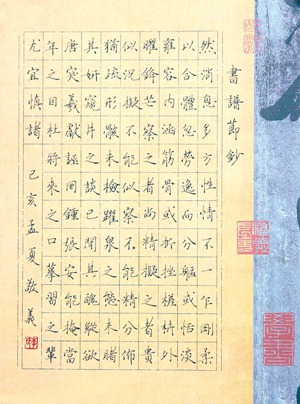 書譜節鈔
然消息多方性情不一乍剛柔
以合體忽勞逸而分驅或恬淡
雍容內涵筋骨或折挫槎枿外
曜鋒芒察之者尚精擬之者貴
似況擬不能似察不能精分佈
猶疏形骸未檢躍泉之態未睹
其妍窺井之談已聞其醜縱欲
唐突羲獻誣罔鍾張安能掩當
年之目杜將來之口摹習之輩
尤宜慎諸 己亥孟夏敬義